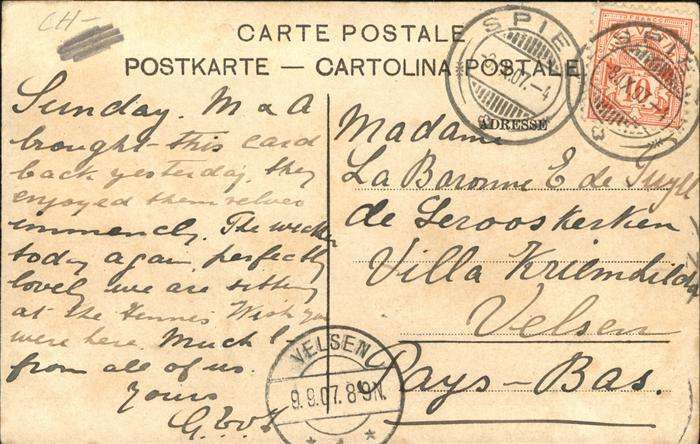 CH-
CARTE POSTALE
POSTKARTE — CARTOLINA POSTALE
SPIEZ
07.-4
ADRESSE
FRANCO
05
Sunday. M & A
brought this card
back yesterday. they
enjoyed themselves
immencly. The weather
today again perfectly
lovely we are sitting
at the tennis Wish you
were here. Much
from all of us.
Yours
Madame
La Baronne E de Tuyll
de Serooskerken
Villa Kriemhilda
Velsen
Pays-Bas.
VELSEN
9.9.07. 8-9N.